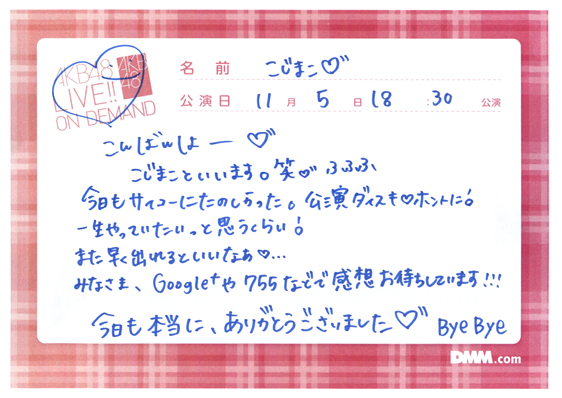 AKB48
LIVE!!
ON DEMAND
AKB
48
名前 こじまこ♡
公演日 11月5日18:30公演
こんばんしょー♡
こじまこといいます。笑♡ふふふ、
今日もサイコーにたのしかった。公演ダイスキ♡ホントに!
一生やっていたいっと思うくらい!
また早く出れるといいなぁ♡...
みなさま、Google+や755などで感想お待ちしています!!!
今日も本当に、ありがとうございました♡ Bye Bye
DMM.com